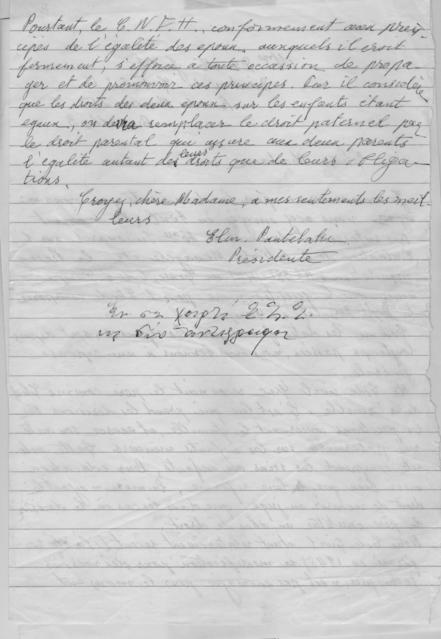 Pourtant, le C.N.F.H. conformement aux prin-
cipes de l'égalité des epoux auxquels il croit
fermement, s'efforce à toute occasion de propa-
ger et de promouvoir ces principes. Car il considère
que les droits des deux epoux sur les enfants etant
egaux, on devra remplacer le droit paternel par
le droit parental qui assure aux deux parents
l'egalité autant de leurs droits que de leurs obliga-
tions.
Croyez, chère Madame, a mes sentiments les meil
leurs
Présidente